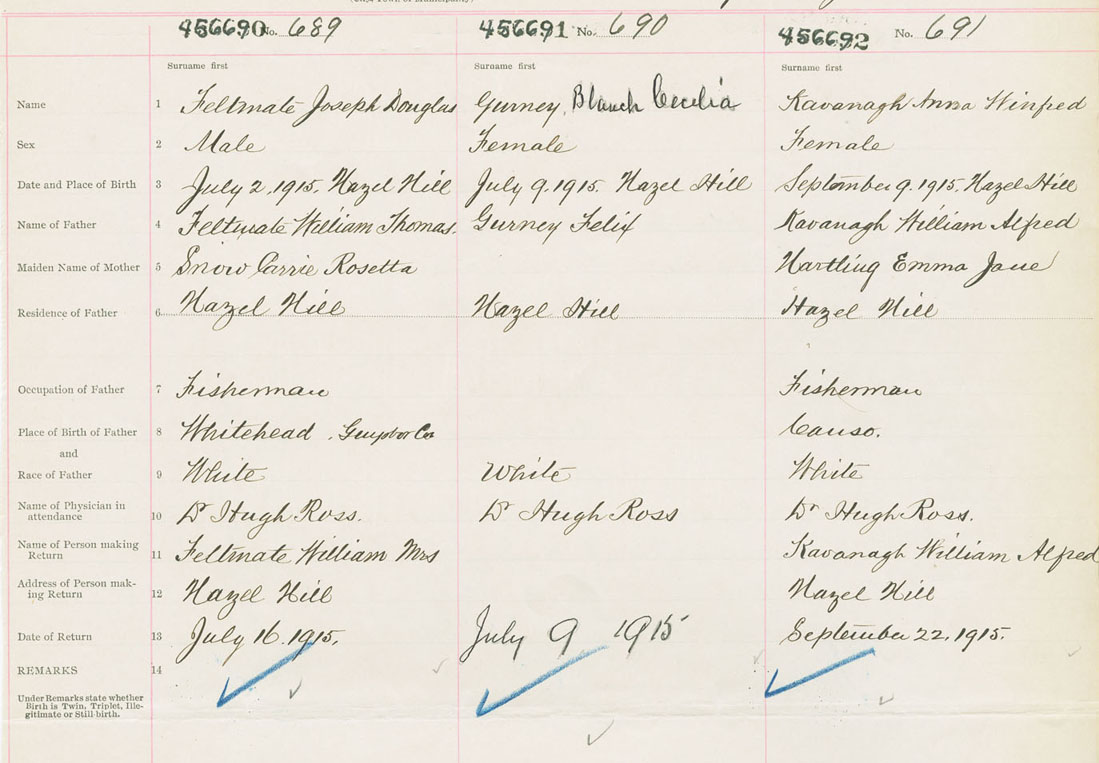 (City, Town or Municipality)
456690 No. 689 456691 No. 690 456692 No. 691
Surname first Surname first Surname first
Name 1 Feltmate Joseph Douglas Gurney, Blanch Cecelia Kavanagh Anna Winfred
Sex 2 Male Female Female
Date and Place of Birth 3 July 2, 1915. Hazel Hill July 9. 1915. Hazel Hill September 9. 1915. Hazel Hill
Name of Father 4 Feltmate William Thomas. Gurney Felix Kavanagh William Alfred
Maiden Name of Mother 5 Snow Carrie Rosetta Hartling Emma Jane
Residence of Father 6 Hazel Hill Hazel Hill Hazel Hill
Occupation of Father 7 Fisherman Fisherman
Place of Birth of Father 8 Whitehead. Guysboro Co Canso.
and
Race of Father 9 White White White
Name of Physician in
attendance 10 Dr Hugh Ross. Dr Hugh Ross Dr Hugh Ross.
Name of Person making
Return 11 Feltmate William Mrs Kavanagh William Alfred
Address of Person mak-
ing Return 12 Hazel Hill Hazel Hill
Date of Return 13 July 16. 1915. July 9 1915 September 22, 1915.
REMARKS 14
Under Remarks state whether
Birth is Twin, Triplet, Ille-
gitimate or Still-birth.